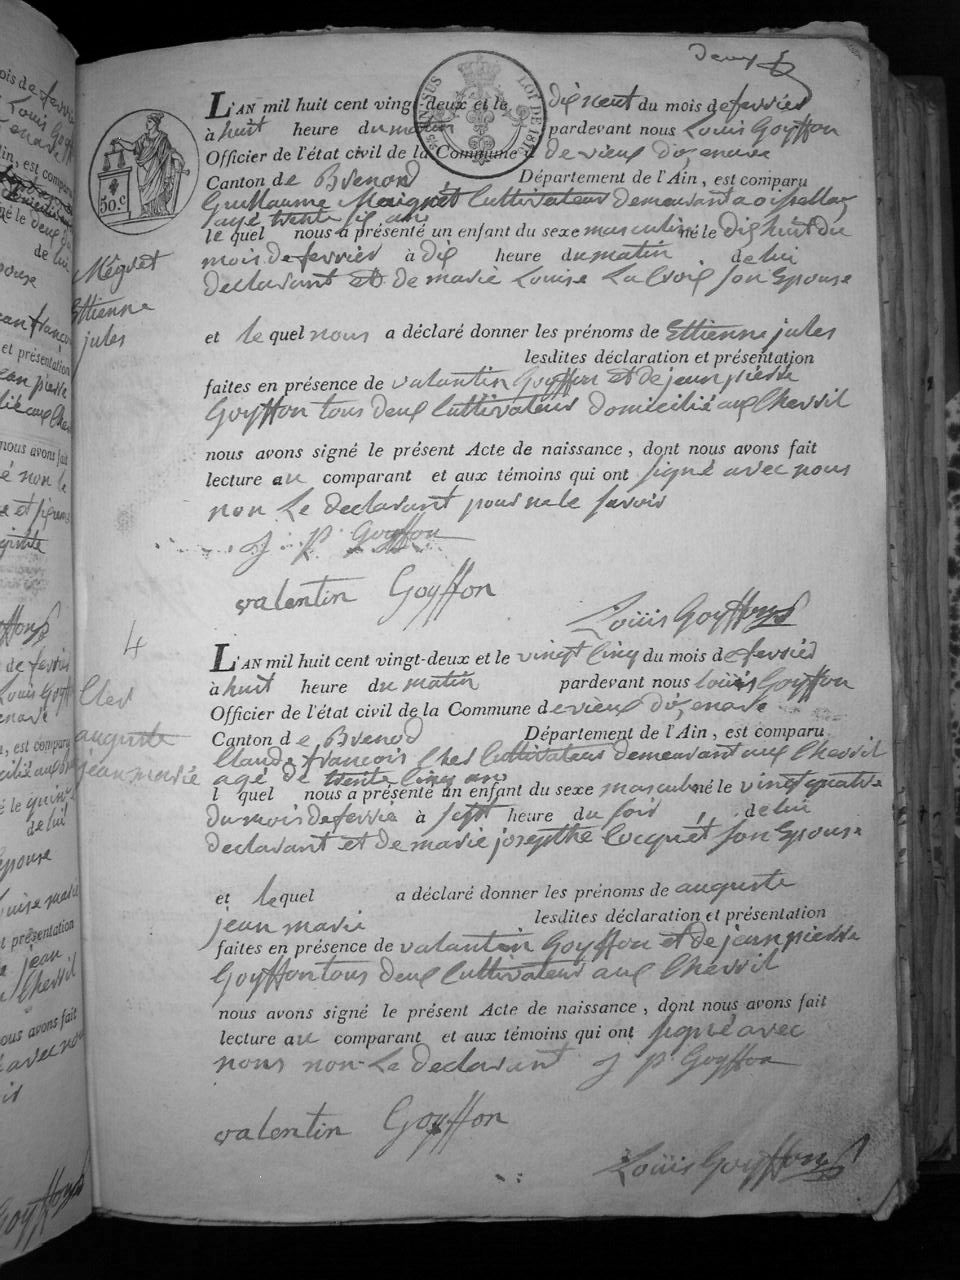 deux
L'AN mil huit cent vingt-deux et le dix neuf du mois de fevrier
à huit heure du matin pardevant nous Louis Goyffon
Officier de l'état civil de la Commune d de vieux d'izenave
Canton de Brenod Département de l'Ain, est comparu
Guillaume Maigret Cultivateur demeurant a oisellaz
agé trente six ans
le quel nous a présenté un enfant du sexe masculin né le dix huit du
mois de fevrier à dix heure du matin de lui
declarant et de marie Louise La Croix son Epouse
et le quel nous a déclaré donner les prénoms de Ettienne jules
lesdites déclaration et présentation
faites en présence de valantin Goyffon et de jean pierre
Goyffon tous deux Cultivateur domicilié aux Chevril
nous avons signé le présent Acte de naissance, dont nous avons fait
lecture au comparant et aux témoins qui ont signé avec nous
non Le declarant pour ne le savoir
J P Goyffon
valentin Goyffon
Loüis Goyffon
Mégret
Ettienne
jules
50.c
LOI DE 181
4
L'AN mil huit cent vingt-deux et le vingt cinq du mois de fevrier
à huit heure du matin pardevant nous louis Goyffon
Officier de l'état civil de la Commune de vieux d'izenave
Canton de Brenod Département de l'Ain, est comparu
Claude françois Cultivateur demeurant aux Chevril
agé de trente cinq an
l quel nous a présenté un enfant du sexe masculin né le vingt quatre
du mois de fevrie à sept heure du soir de lui
declarant et de marie josepthe Cocquet son Epouse
et le quel a déclaré donner les prénoms de auguste
jean marie lesdites déclaration et présentation
faites en présence de valantin Goyffon et de jean pierre
Goyffon tous deux Cultivateur aux Chevril
nous avons signé le présent Acte de naissance, dont nous avons fait
lecture au comparant et aux témoins qui ont signé avec
nous non Le declarant J P Goyffon
valentin Goyffon
Loüis Goyffon
auguste
jean-marie